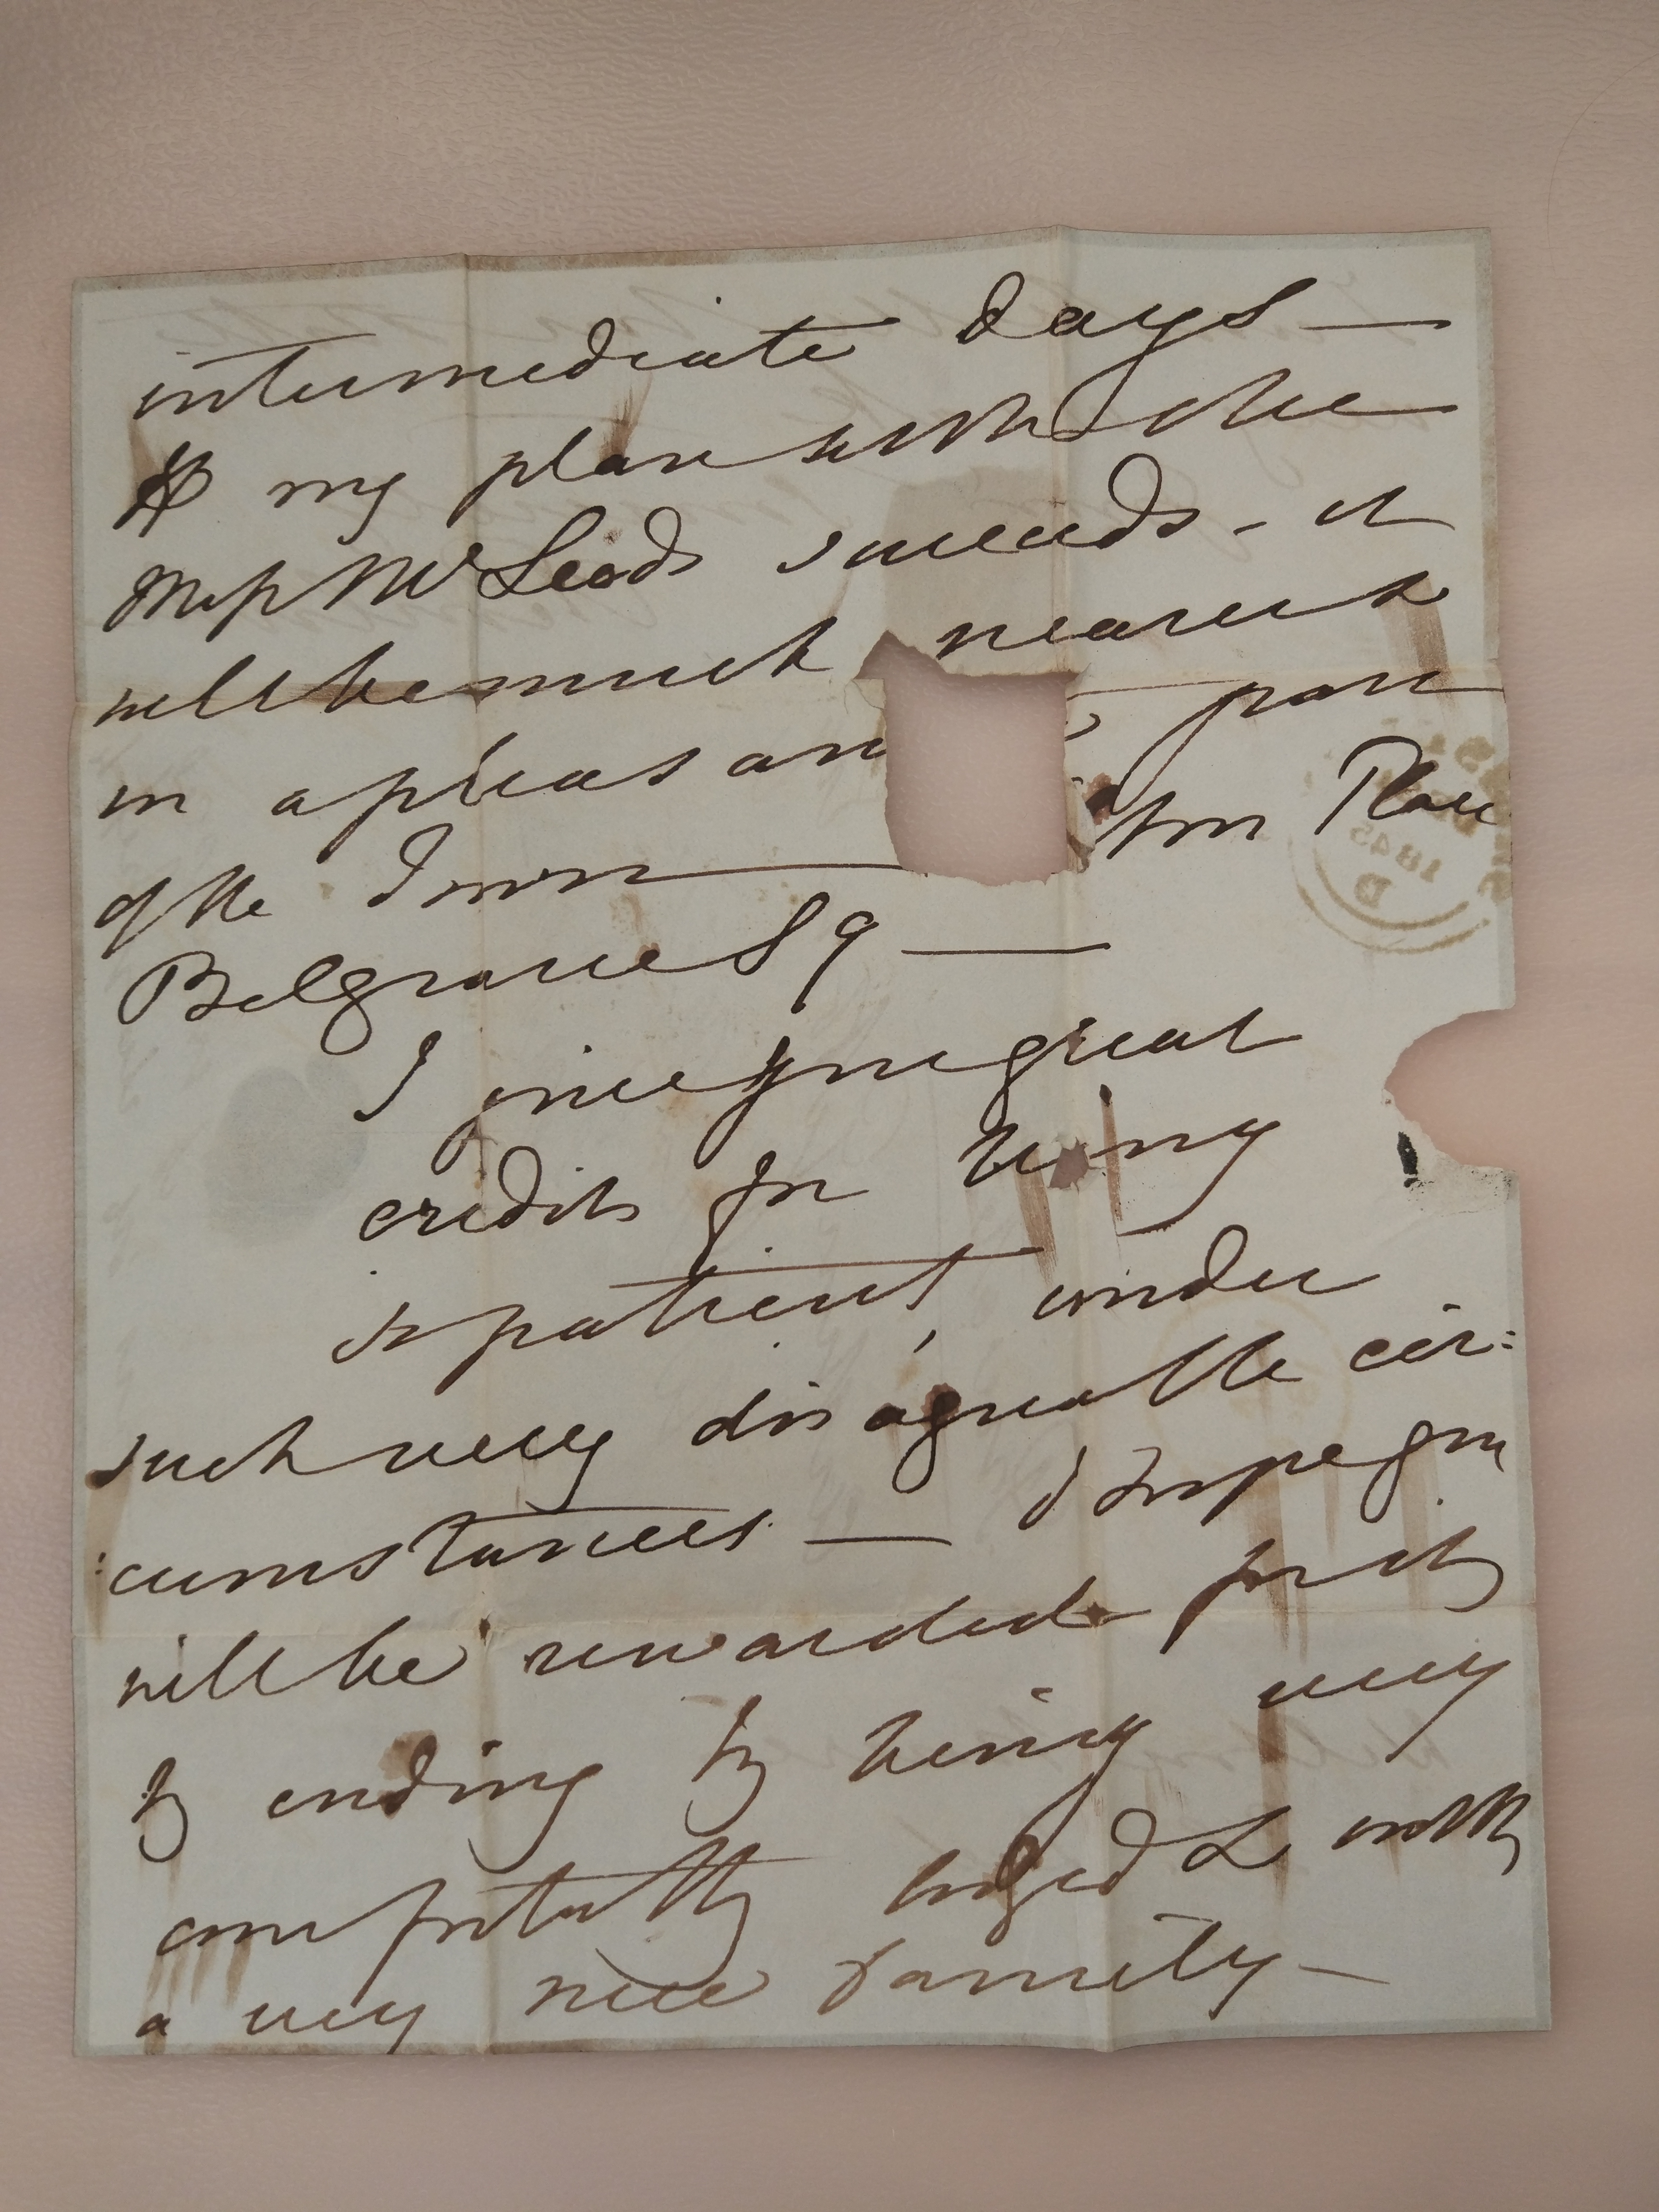 intermediate days —
If my plan with the
Miss McLeods succeeds - it
will be much nearer &
in a pleasan part
of the Town — ton Place
Belgrave Sq —
I give you great
credit for being
so patient, under
such very disagreeable cir:
:cumstances — I hope you
will be rewarded for it,
by ending by being very
comfortably lodged & with
a very nice family —
1845
D